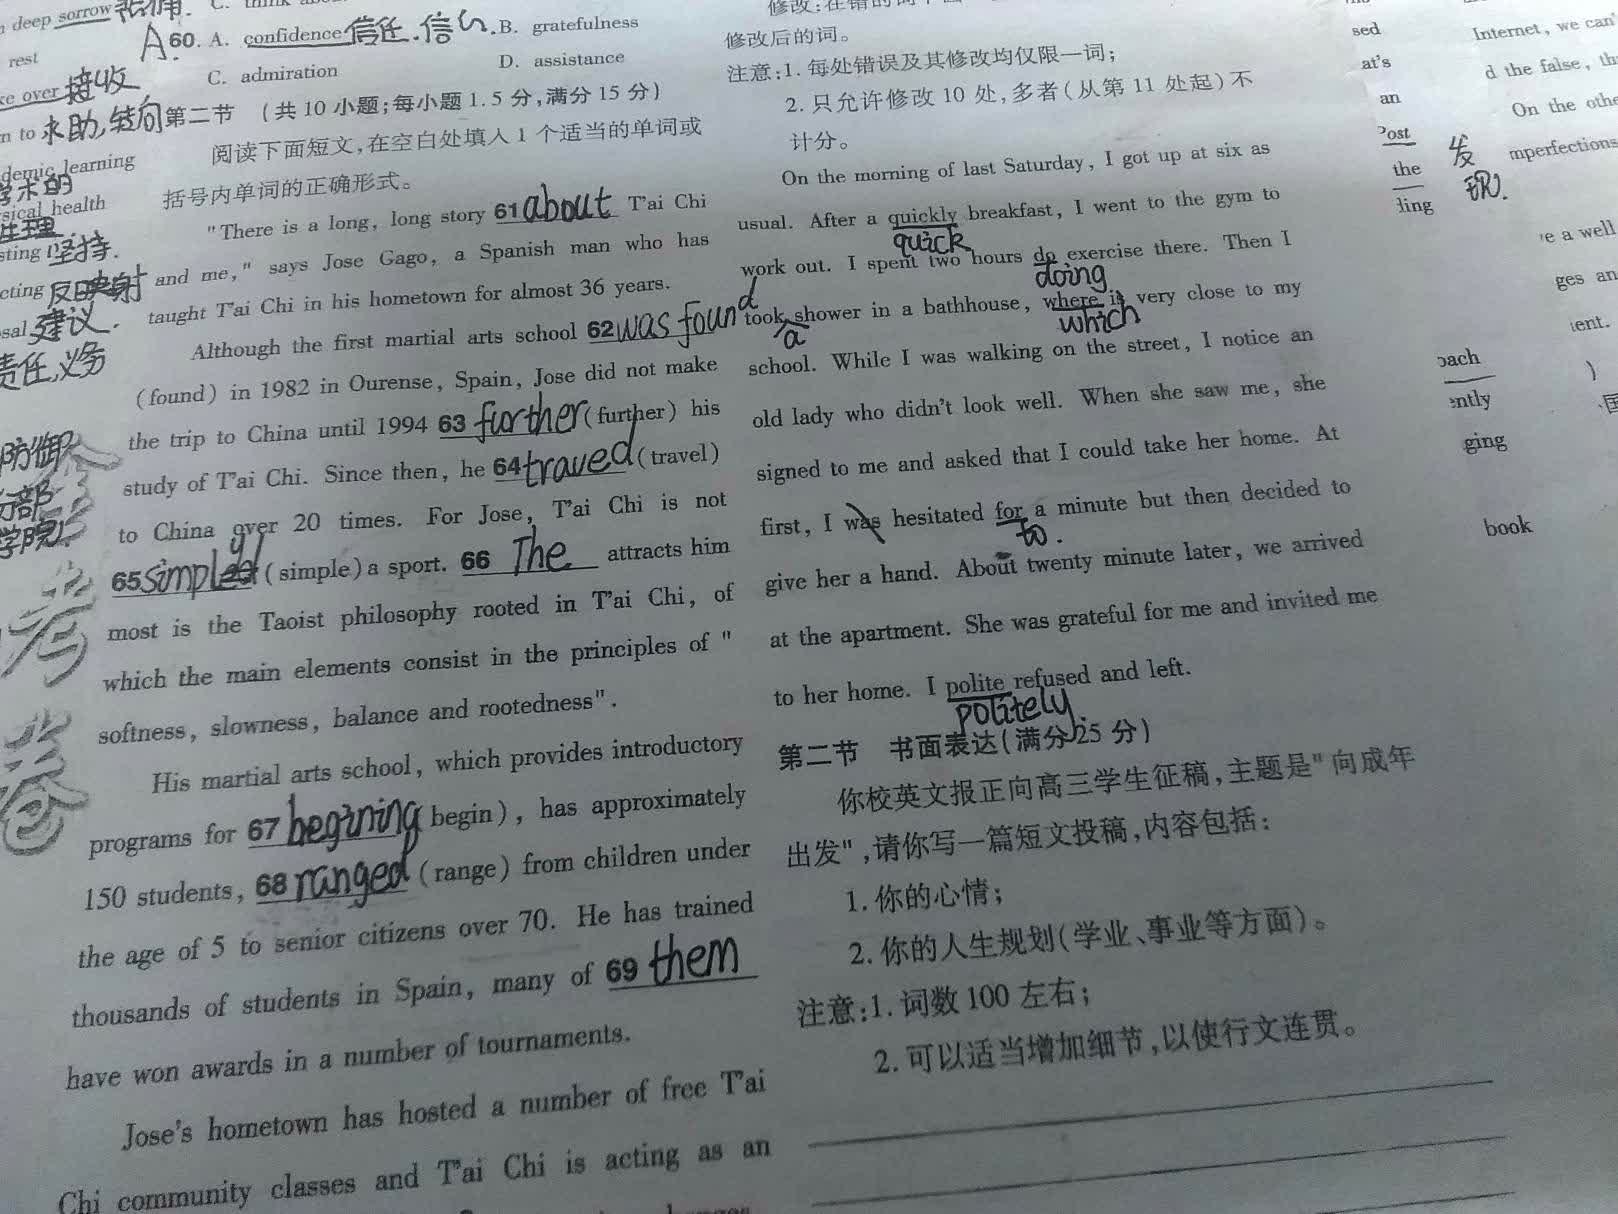 deep sorrow
rest
over 接收
to 求助,转向
demic learning
学术的
sical health
生理
sting 坚持.
cting 反映射
sal 建议.
责任,义务
防御
行部
学院
考
卷
A.60. A. confidence 信任.信心. B. gratefulness
C. admiration D. assistance
第二节 (共10小题;每小题1.5分,满分15分)
阅读下面短文,在空白处填入1个适当的单词或
括号内单词的正确形式。
"There is a long, long story 61 about T'ai Chi
and me," says Jose Gago, a Spanish man who has
taught T'ai Chi in his hometown for almost 36 years.
Although the first martial arts school 62 was found
(found) in 1982 in Ourense, Spain, Jose did not make
the trip to China until 1994 63 further (further) his
study of T'ai Chi. Since then, he 64 traved (travel)
to China over 20 times. For Jose, T'ai Chi is not
65 simply (simple) a sport. 66 The attracts him
most is the Taoist philosophy rooted in T'ai Chi, of
which the main elements consist in the principles of "
softness, slowness, balance and rootedness".
His martial arts school, which provides introductory
programs for 67 begining (begin), has approximately
150 students, 68 ranged (range) from children under
the age of 5 to senior citizens over 70. He has trained
thousands of students in Spain, many of 69 them
have won awards in a number of tournaments.
Jose's hometown has hosted a number of free T'ai
Chi community classes and T'ai Chi is acting as an
修改后的词。
注意:1. 每处错误及其修改均仅限一词;
2. 只允许修改10处,多者(从第11处起)不
计分。
On the morning of last Saturday, I got up at six as
usual. After a quickly breakfast, I went to the gym to
quick
work out. I spent two hours do exercise there. Then I
doing
took shower in a bathhouse, where is very close to my
a which
school. While I was walking on the street, I notice an
old lady who didn't look well. When she saw me, she
signed to me and asked that I could take her home. At
first, I was hesitated for a minute but then decided to
to.
give her a hand. About twenty minute later, we arrived
at the apartment. She was grateful for me and invited me
to her home. I polite refused and left.
politely.
第二节 书面表达(满分25分)
你校英文报正向高三学生征稿,主题是"向成年
出发",请你写一篇短文投稿,内容包括:
1. 你的心情;
2. 你的人生规划(学业、事业等方面)。
注意:1. 词数100左右;
2. 可以适当增加细节,以使行文连贯。
sed
at's
an
Post
the
ding
oach
ently
ging
book
发
Internet, we can'
d the false, th
On the othe
mperfections
e a well
ges an
ient.